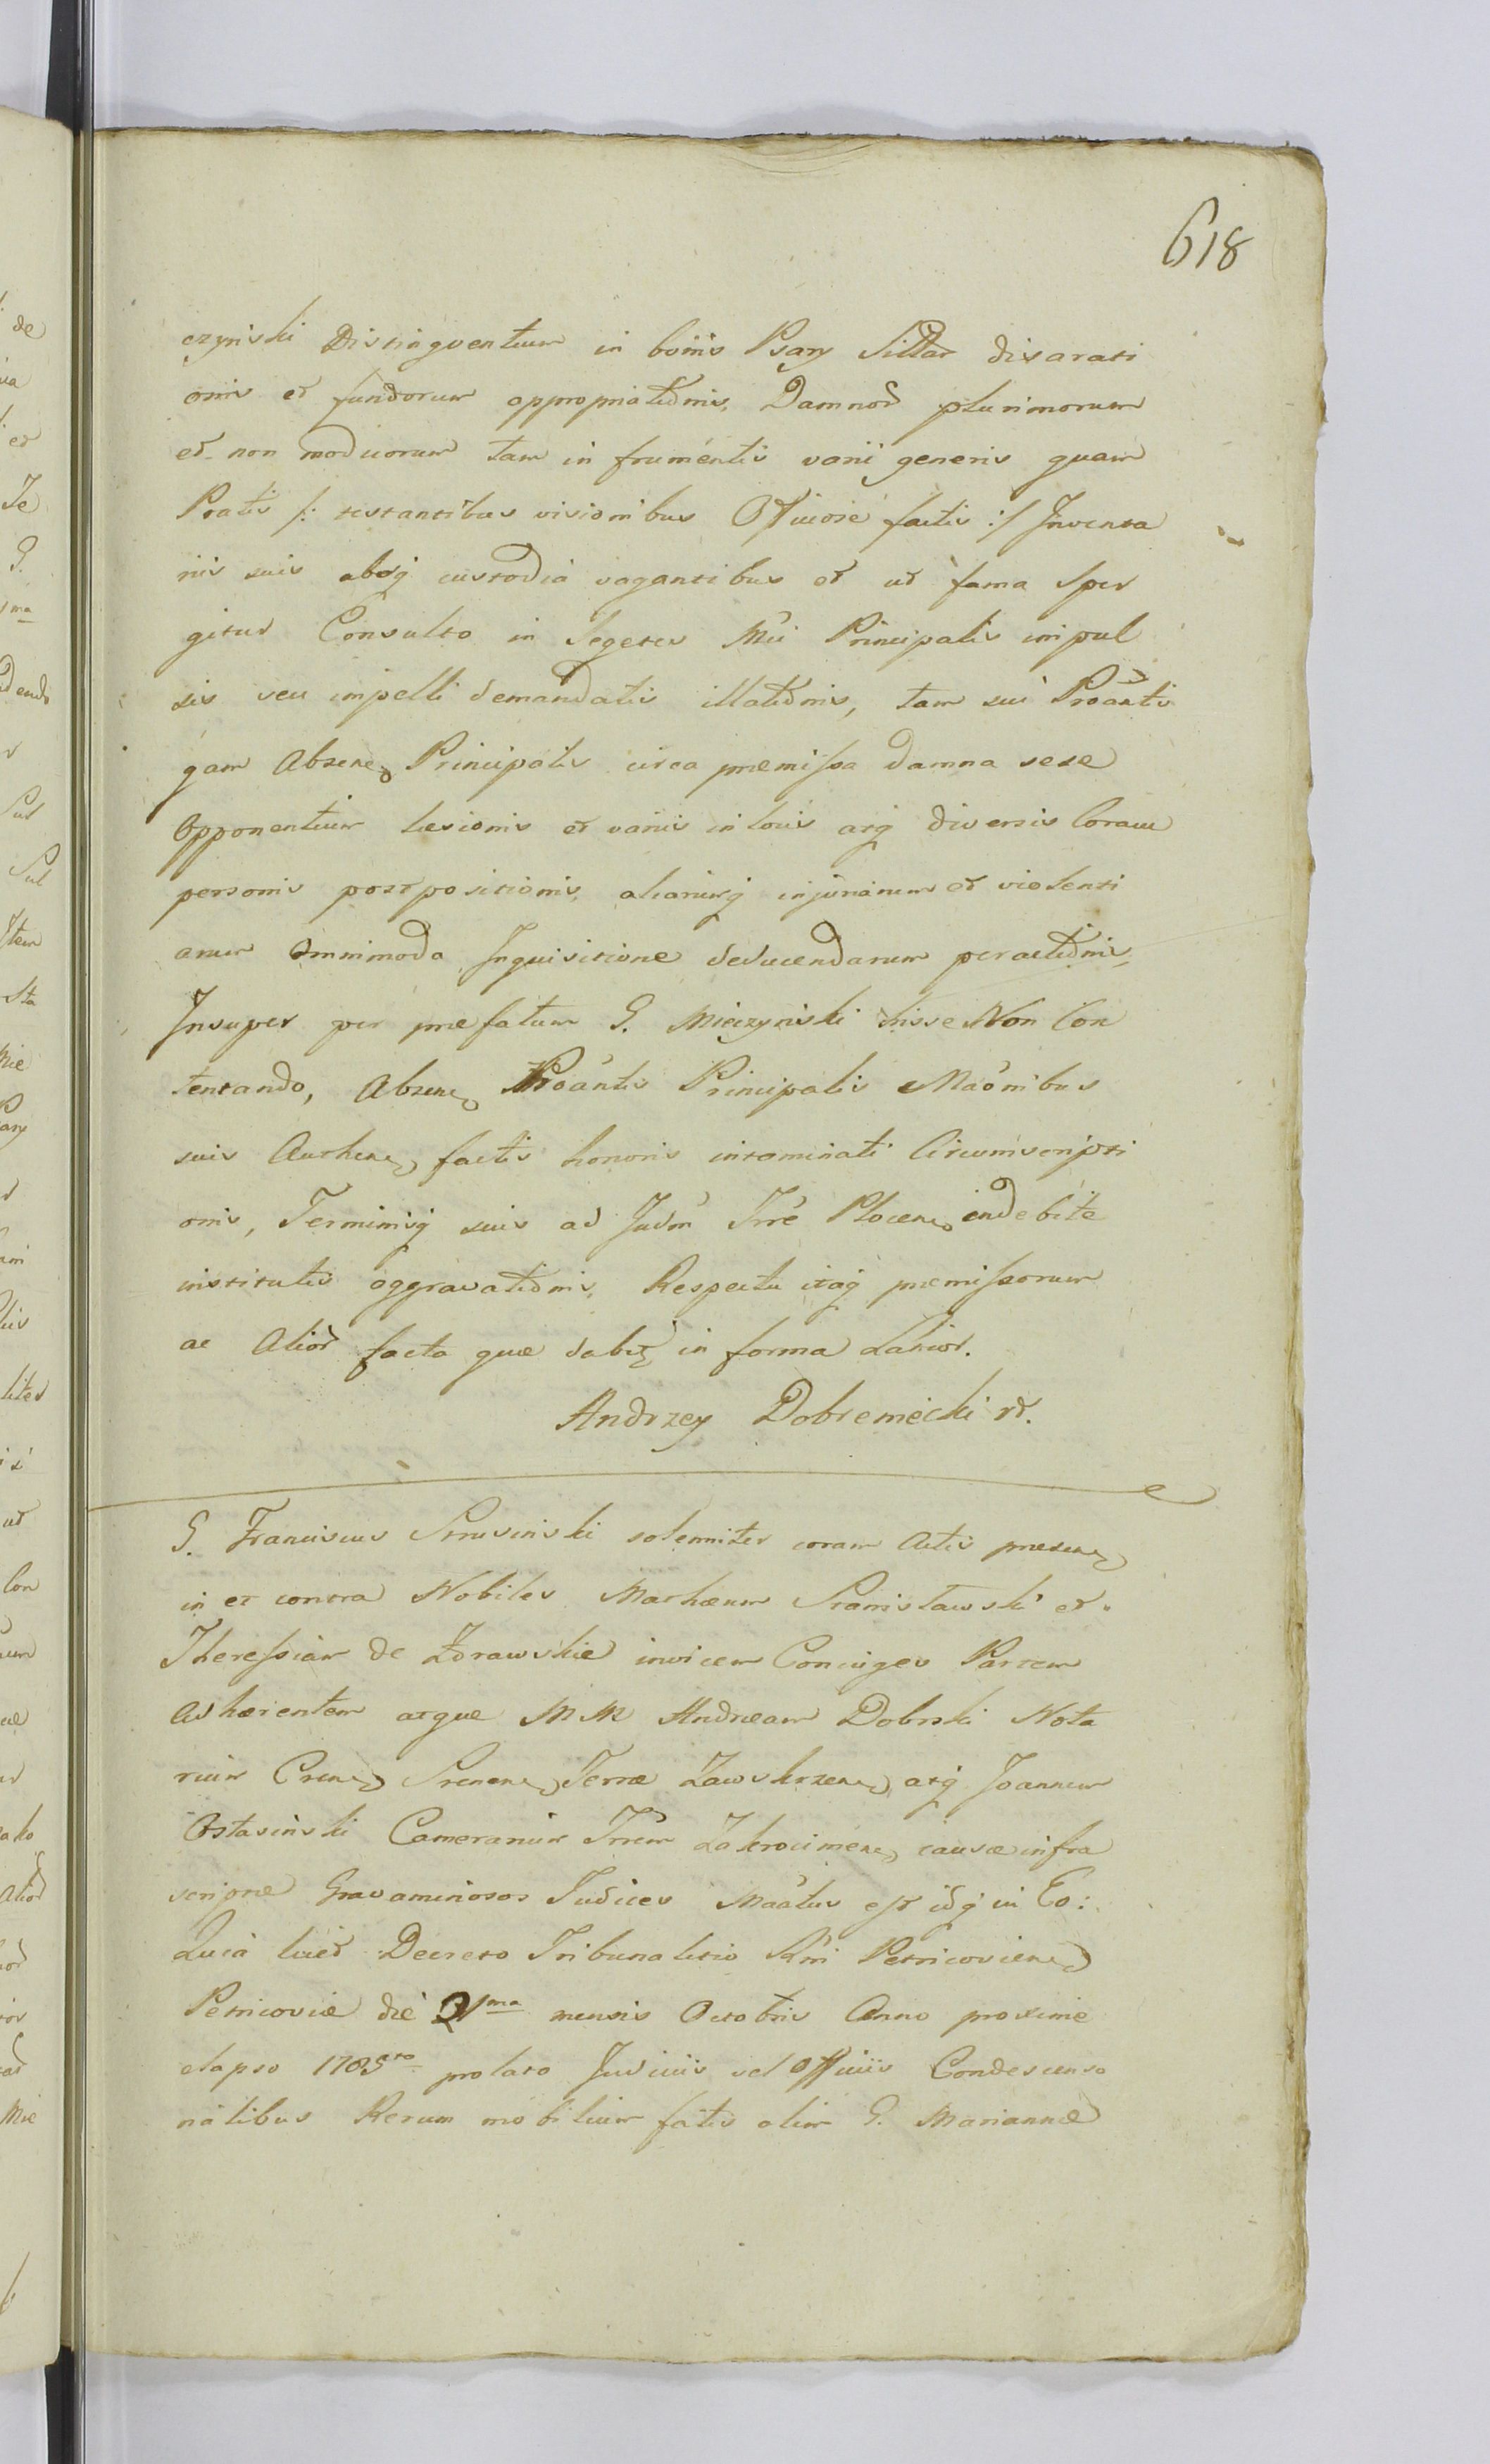 618
czynski Distingventium in bonis Psary Sittar disarati
onis et fundorum appropriationis, Damnor plurimorum
et non modicorum tam in frumentis varii generis quam
Pratis /: testantibus visionibus Officiose factis :/ Inventa
riis suis absq custodia vagantibus et ut fama sper
gitur Consulto in Segetes Mci Principalis impul
sis seu impelli demandatis illationis, tam sui Proantis
qam Absene Principalis circa præmissa damna sese
Opponentium læsionis et variis in locis atq diversis Coram
personis postpositionis, aliarumq injuriarum et violenti
arum Omnimoda Inquisitione deducendarum peractionis,
Insuper per præfatum G. Mieczynski hisse Non Con
tentando, Absene Proantis Principalis Maonibus
suis Authene factis honoris intaminati Circumscripti
onis, Terminisq suis ad Judm Trre Plocene indebite
institutis aggravationis, Respectu itaq præmissorum
ac Alior facta quæ dabit in forma Latior.
Andrzey Dobremecki rt.
G. Franciscus Srusinski solemniter coram Actis præsene
in et contra Nobiles Mathæum Stanisławski et
Theressiam de Zdrawskie invicem Coniuges Partem
Adhærentem atque MM Andræam Dobrski Nota
rium Crene Srenene Terræ Zawskrzene atq Joannem
Ostasinski Camerarium Trrem Zakrocimene causæ infra
scriptæ Gravaminosos Judices Maatus est idq in Eo:
Quia licet Decreto Tribunalitio Petricoviene
Petricoviæ die 21ma mensis Octobris Anno proxime
elapso 1785to prolato Judiciis vel Officiis Condescenso
rialibus Rerum mobilium fatis olim G. Mariannæ